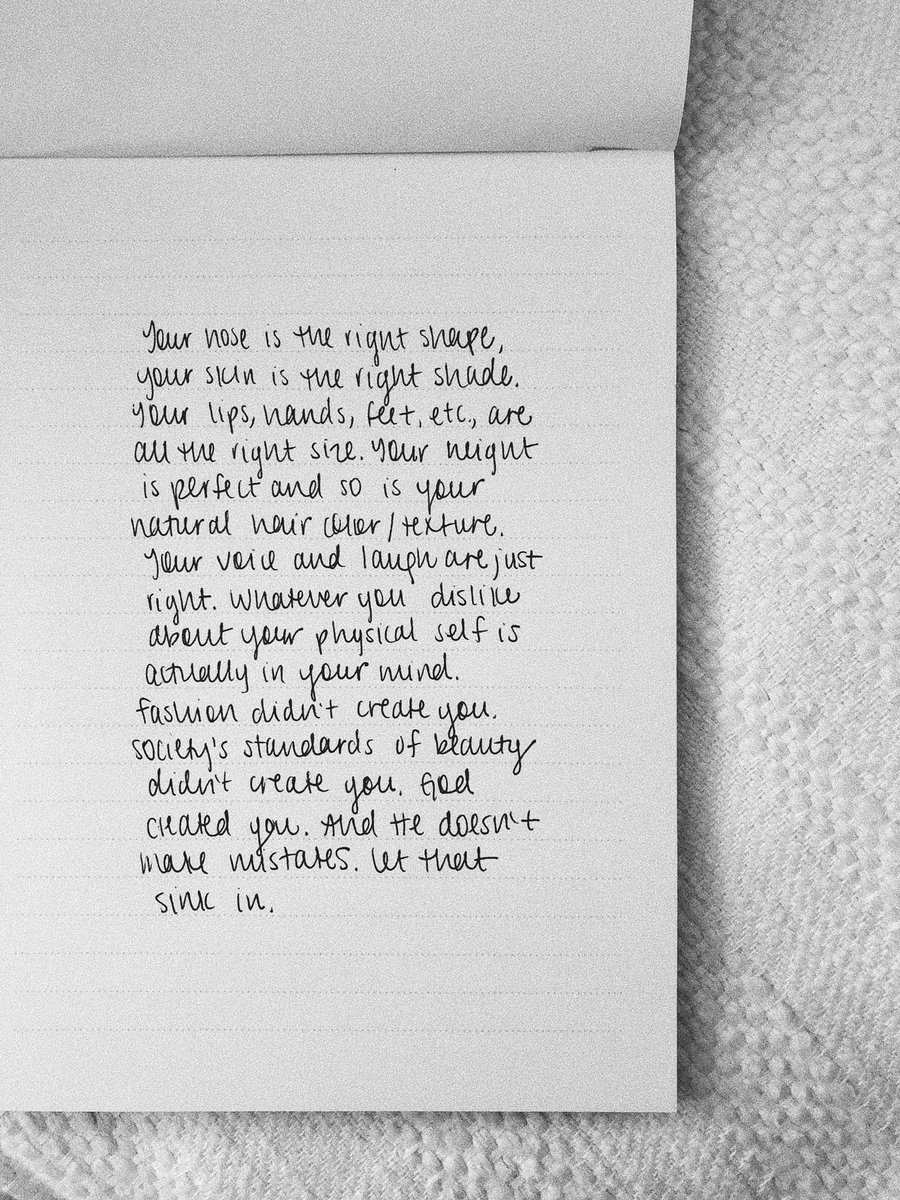 Your nose is the right shape,
your skin is the right shade.
Your lips, hands, feet, etc., are
all the right size. Your height
is perfect and so is your
natural hair color/texture.
Your voice and laugh are just
right. Whatever you dislike
about your physical self is
actually in your mind.
Fashion didn't create you.
Society's standards of beauty
didn't create you. God
created you. And He doesn't
make mistakes. Let that
sink in.